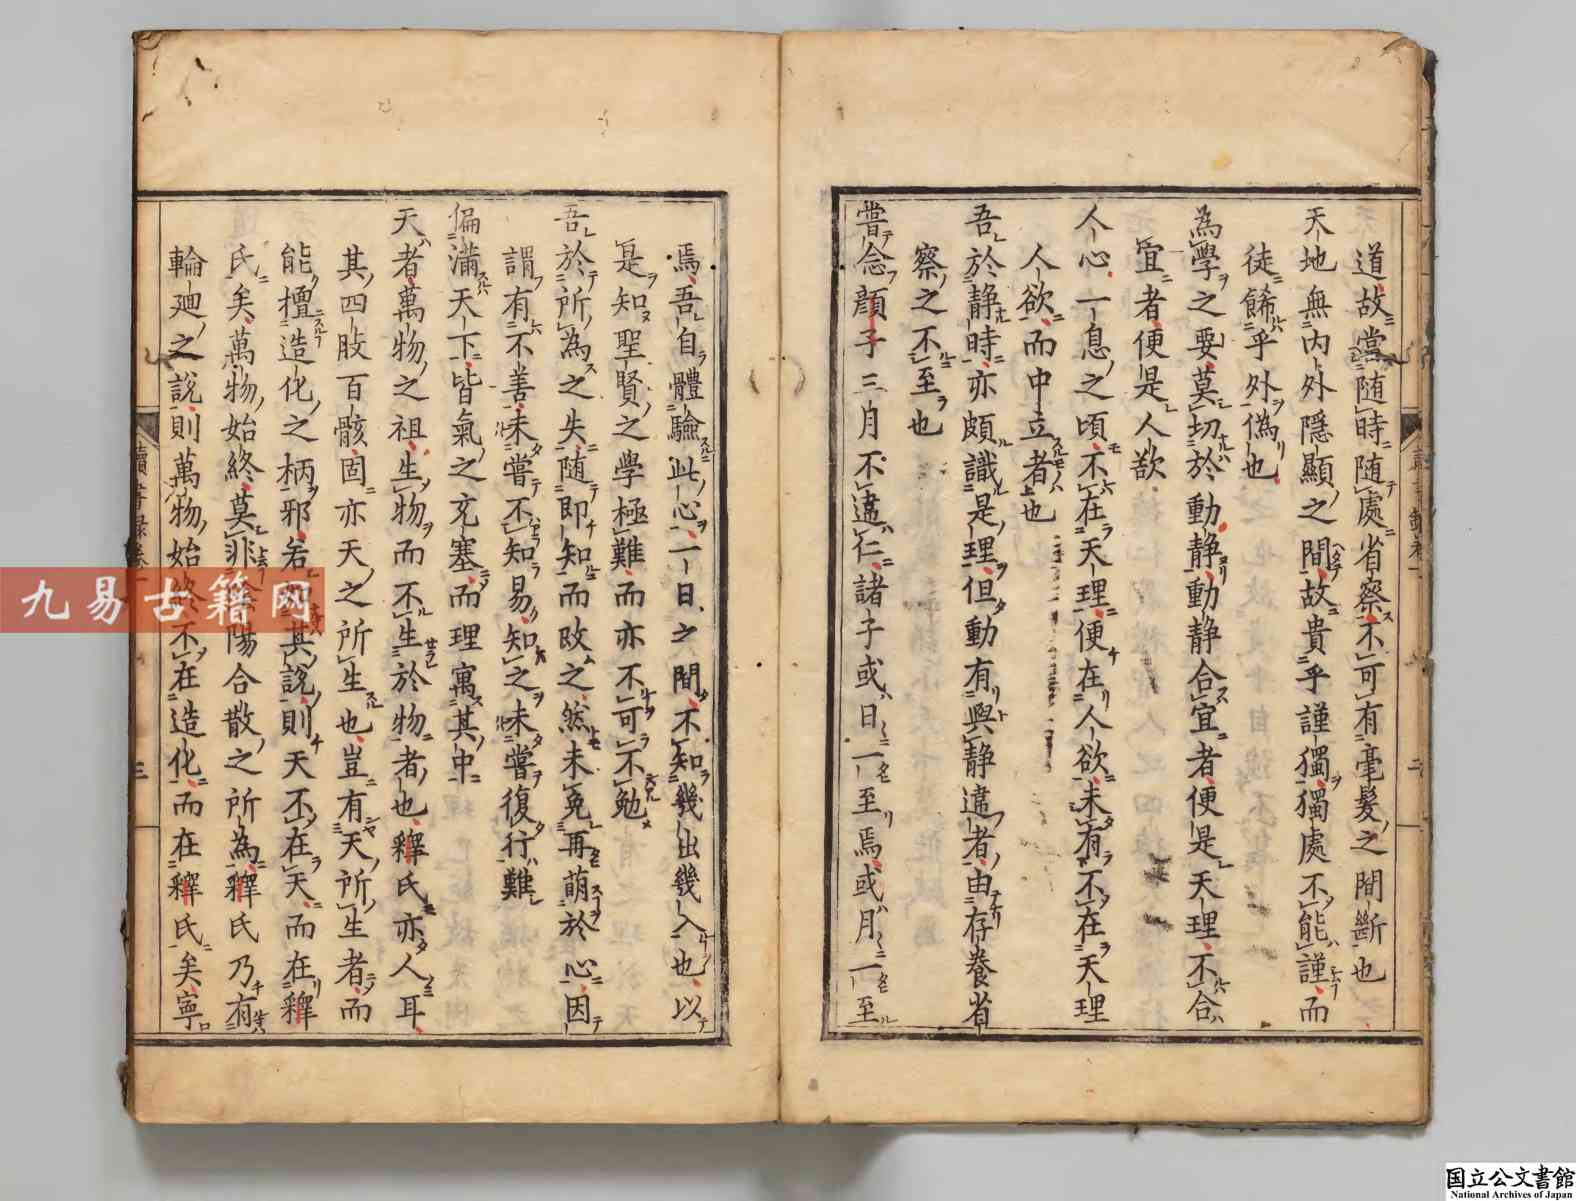 道故當随時随處省察不可有毫髪之間斷也
天地無内外隠顯之間故貴乎謹獨獨處不能謹而
徒餙乎外偽也
為學之要莫切於動静動静合宜者便是天理不合
宜者便是人欲
人心一息之頃不在天理便在人欲未有不在天理
人欲而中立者也
吾於静時亦頗識是理但動有與静違者由存養省
察之不至也
嘗念顔子三月不違仁諸子或日一至焉或月一至
焉吾自體驗此心一日之間不知幾出幾入也以
是知聖賢之學極難而亦不可不勉
吾於所為之失随即知而改之然未免再萌於心因
謂有不善未嘗不知易知之未嘗復行難
徧滿天下皆氣之充塞而理寓其中
天者萬物之祖生物而不生於物者也釋氏亦人耳
其四肢百骸固亦天之所生也豈有天所生者而
能擅造化之柄邪若如其說則天不在天而在釋
氏矣萬物始終莫非陰陽合散之所為釋氏乃有
輪廻之說則萬物始終不在造化而在釋氏矣寧
讀書録卷一
二
讀書録卷一
三
九易古籍网
国立公文書館
National Archives of Japan